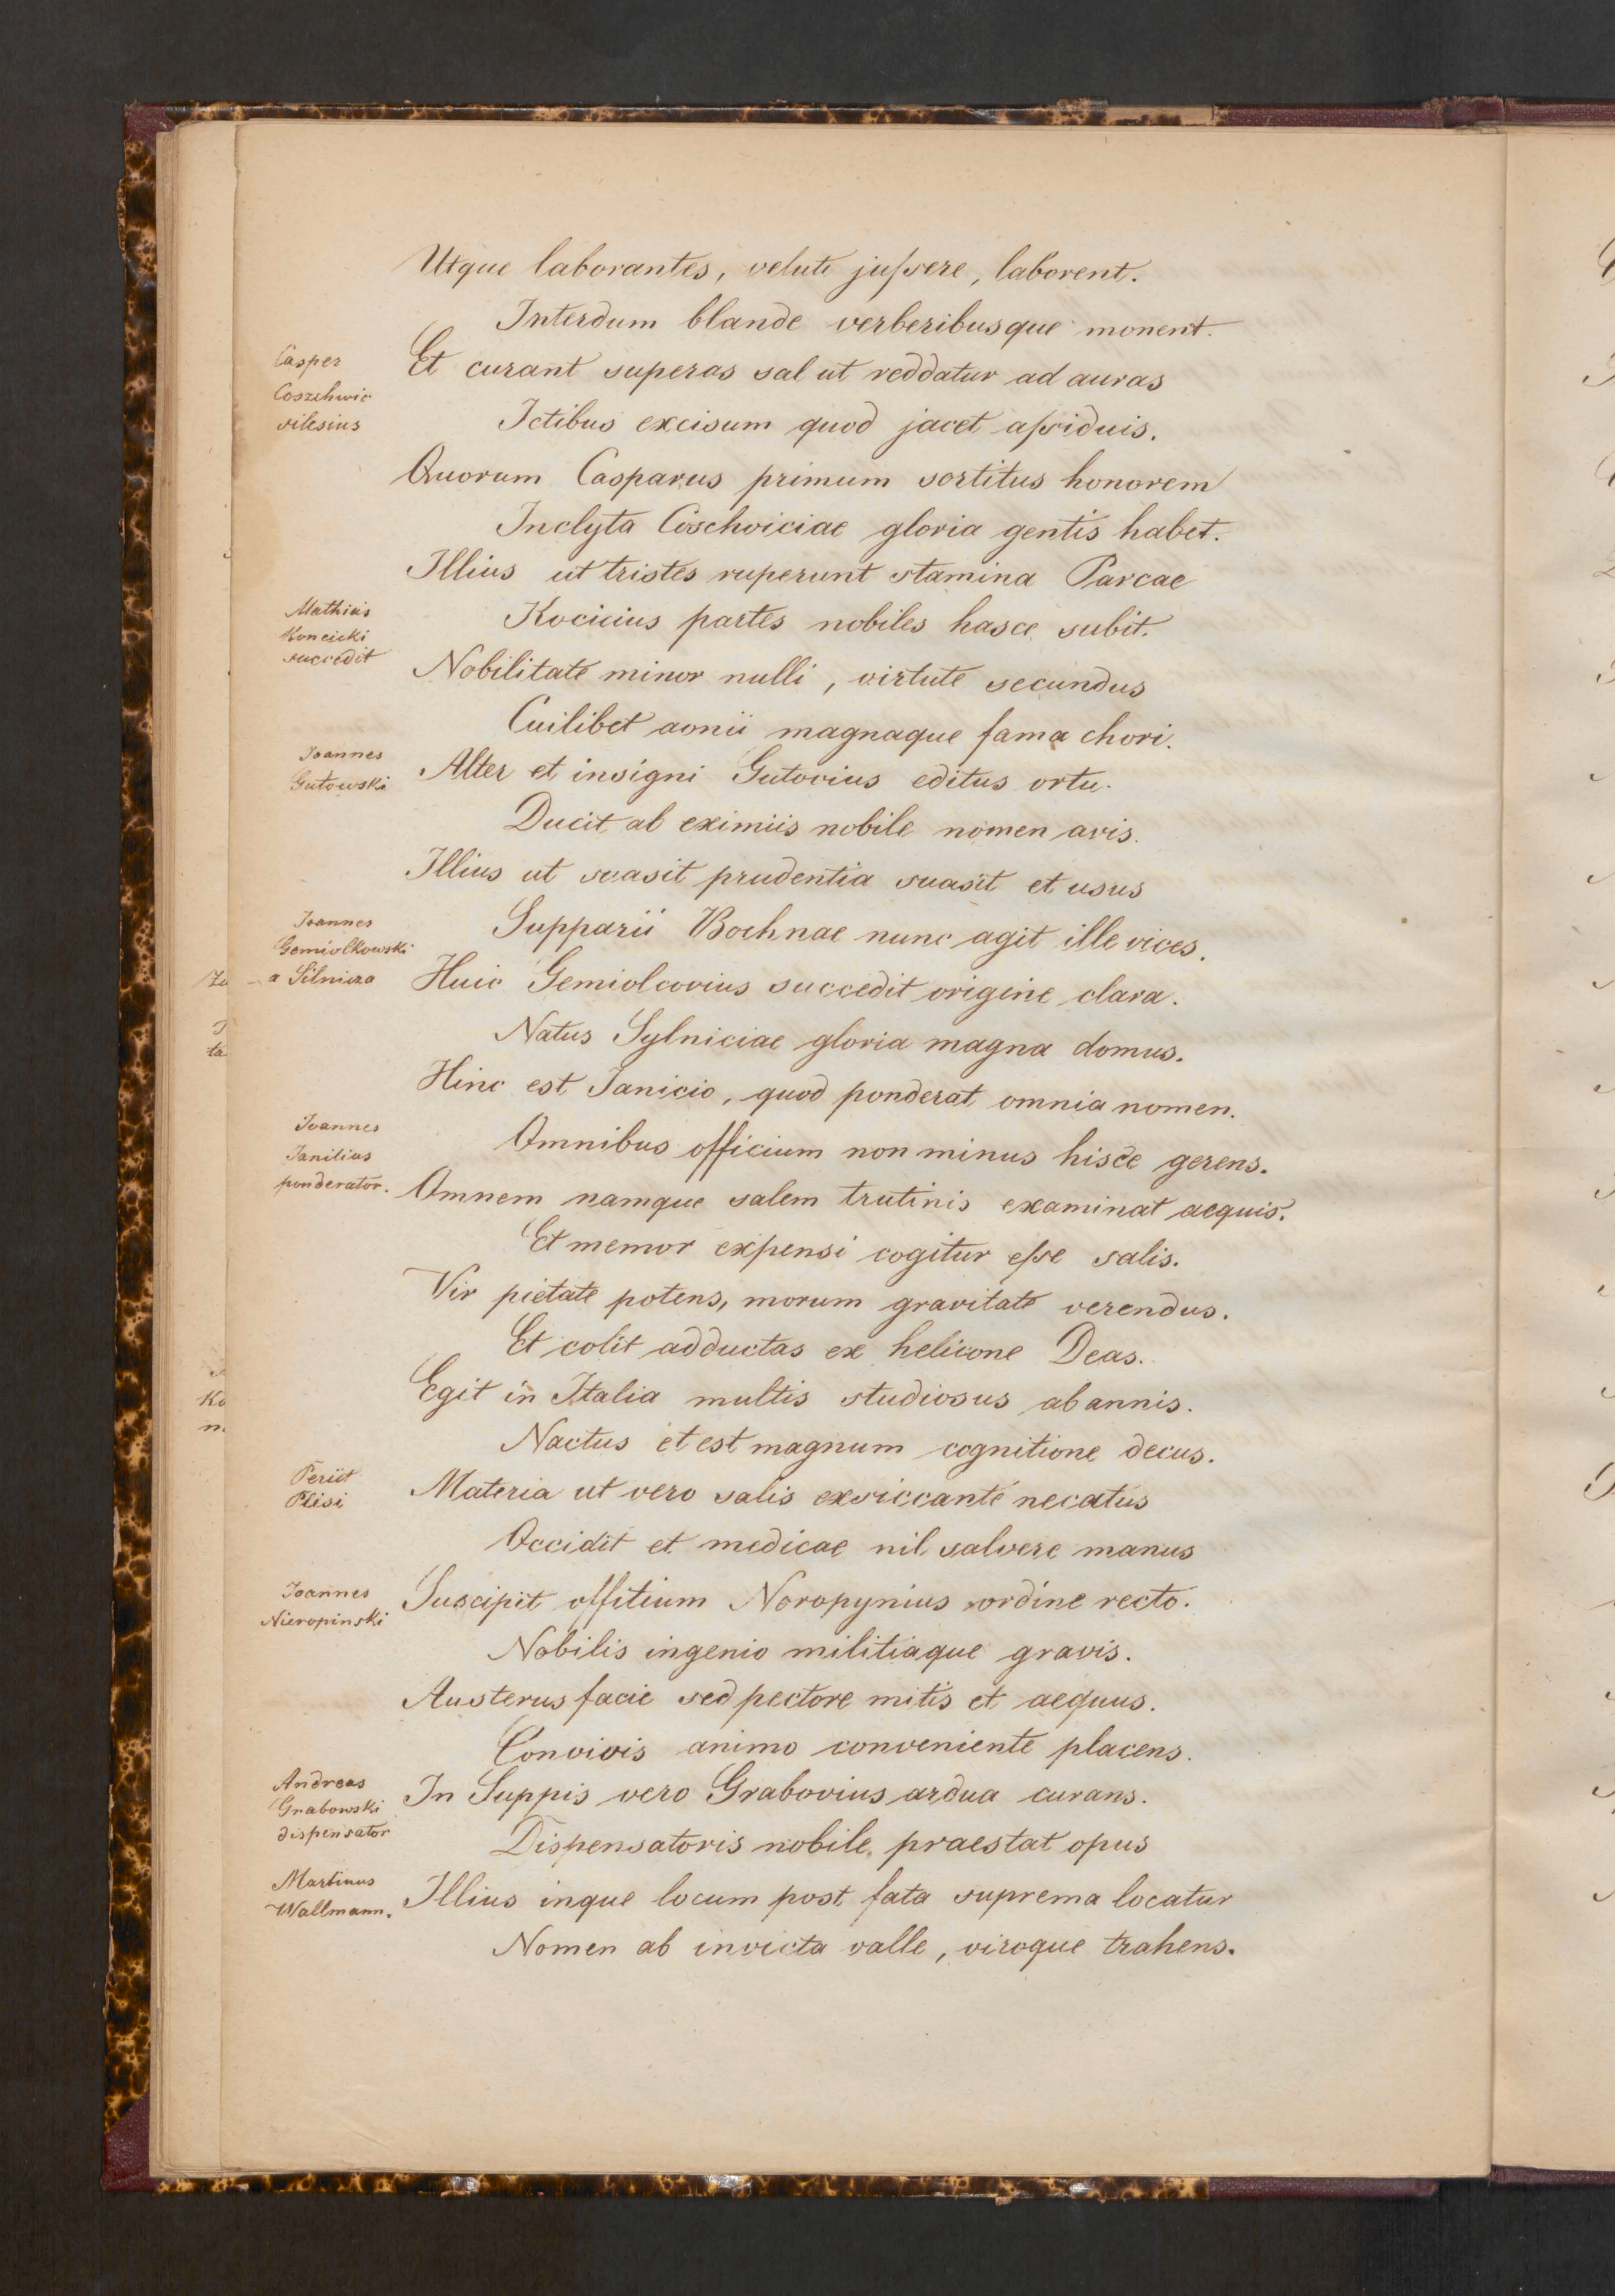 Utque laborantes, veluti juſsere, laborent.
Interdum blande verberibusque monent.
Casper
Coszchwic
silesius
Et curant superas sal ut reddatur ad auras
Ictibus excisum quod jacet aſsiduis.
Quorum Casparus primum sortitus honorem
Inclyta Coschviciae gloria gentis habet.
Illius ut tristes ruperunt stamina Parcae
Mathias
Koncicki
succedit
Kocicius partes nobiles hasce subit.
Nobilitate minor nulli, virtute secundus
Cuilibet aonii magnaque fama chori.
Joannes
Gutowski
Alter et insigni Gutovius editus ortu.
Ducit ab eximiis nobile nomen avis.
Illius ut suasit prudentia suasit et usus
Joannes
Gemiolkowski
a Silnicza
Supparii Bochnae nunc agit ille vices.
Huic Gemiolcovius succedit origine clara.
Natus Sylniciae gloria magna domus.
Hinc est Janicio, quod ponderat omnia nomen.
Joannes
Janilius
ponderator.
Omnibus officium non minus hisce gerens.
Omnem namque salem trutinis examinat aequis.
Et memor expensi cogitur eſse salis.
Vir pietate potens, morum gravitate verendus.
Et colit adductas ex helicone Deas.
Egit in Italia multis studiosus ab annis.
Nactus et est magnum cognitione decus.
Periit
Plisi
Materia ut vero salis exsiccante necatus
Occidit et medicae nil salvere manus
Joannes
Nieropinski
Suscipit offitium Noropynius ordine recto.
Nobilis ingenio militiaque gravis.
Austerus facie sed pectore mitis et aequus.
Convivis animo conveniente placens.
Andreas
Grabowski
dispensator
In Suppis vero Grabovius ardua curans.
Dispensatoris nobile praestat opus
Martinus
Wallmann.
Illius inque locum post fata suprema locatur
Nomen ab invicta valle, viroque trahens.